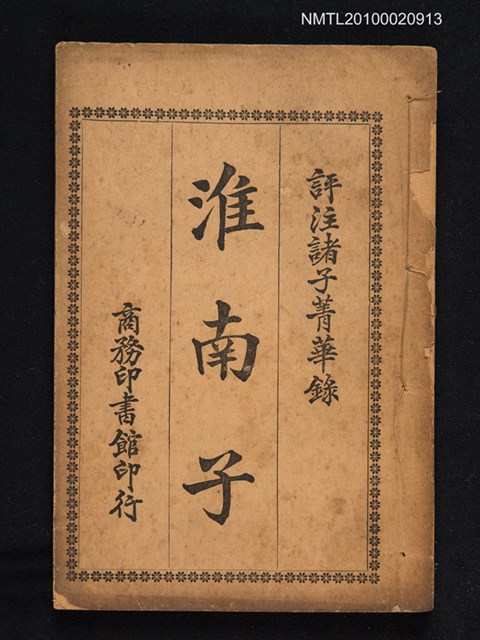 NMTL20100020913
評注諸子菁華錄
淮南子
商務印書館印行